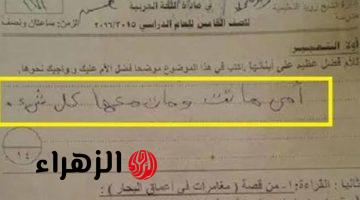 في مادة اللغة العربية
الزمن: ساعتان ونصف
للصف الخامس للعام الدراسي ٢٠١٦/٢٠١٥
التعبير
للأم فضل عظيم على أبنائها. اكتب في هذا الموضوع موضحا فضل الأم عليك وواجبك نحوها.
أمي ماتت ومات معها كل شيء.
١٤
الزهراء
ثانيا : القراءة: ١- من قصة ( مغامرات في أعماق البحار )